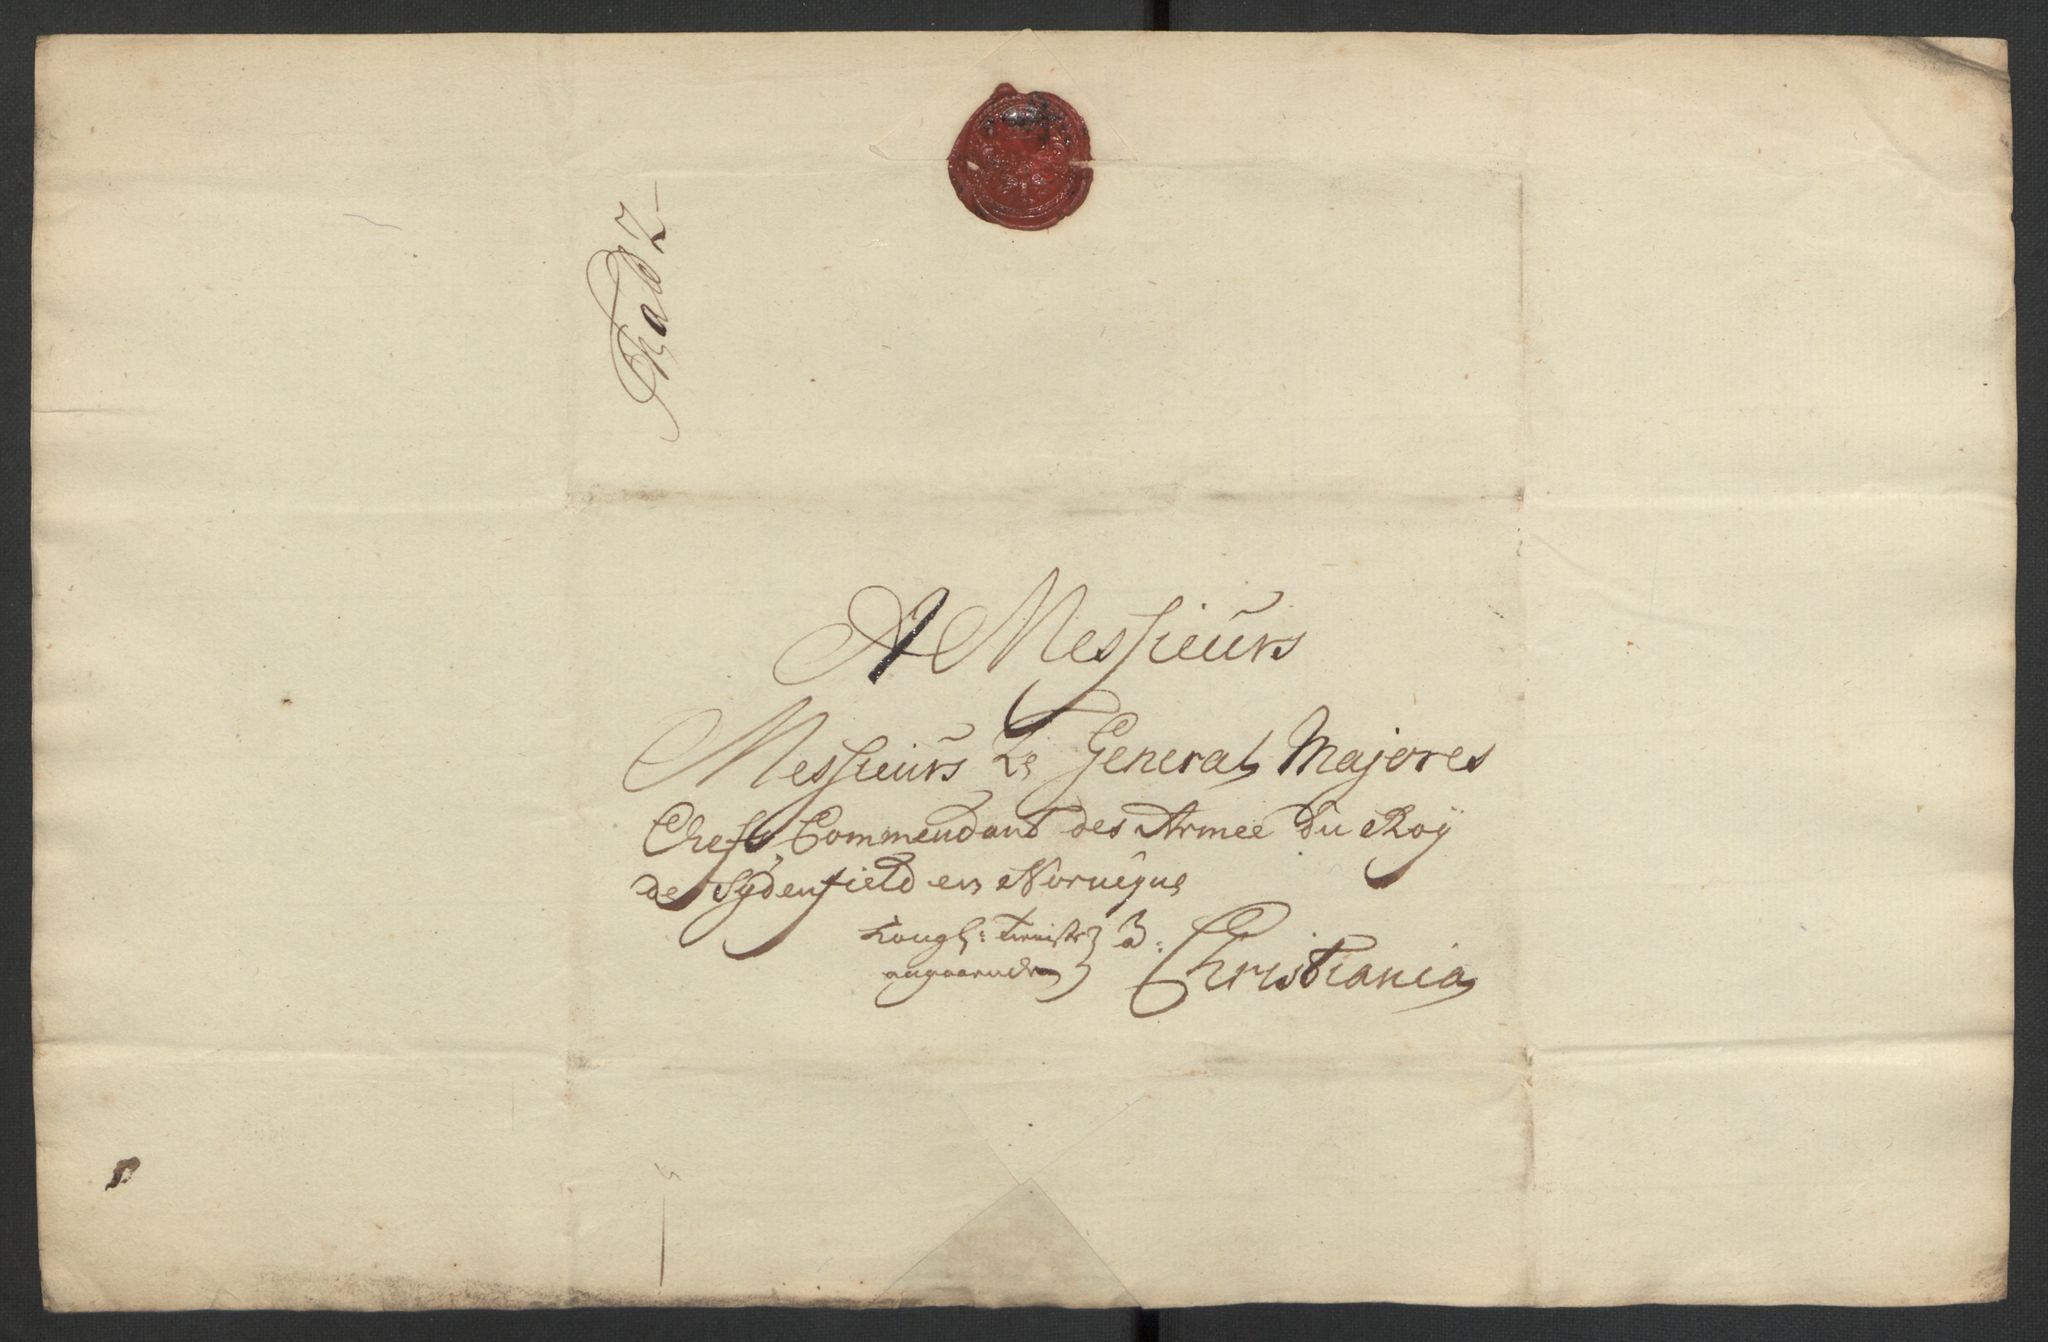 A Messieurs
Messieurs Le General Majores
Chefs Commendant des Armee du Roÿ
de Sÿdenfield en Norvegue
Kongl: Tieniste
angaaende
à: Christiania